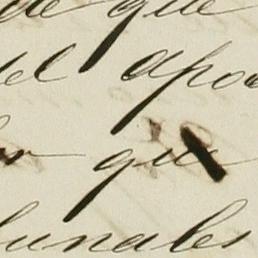 de que
del apo
que
bunales